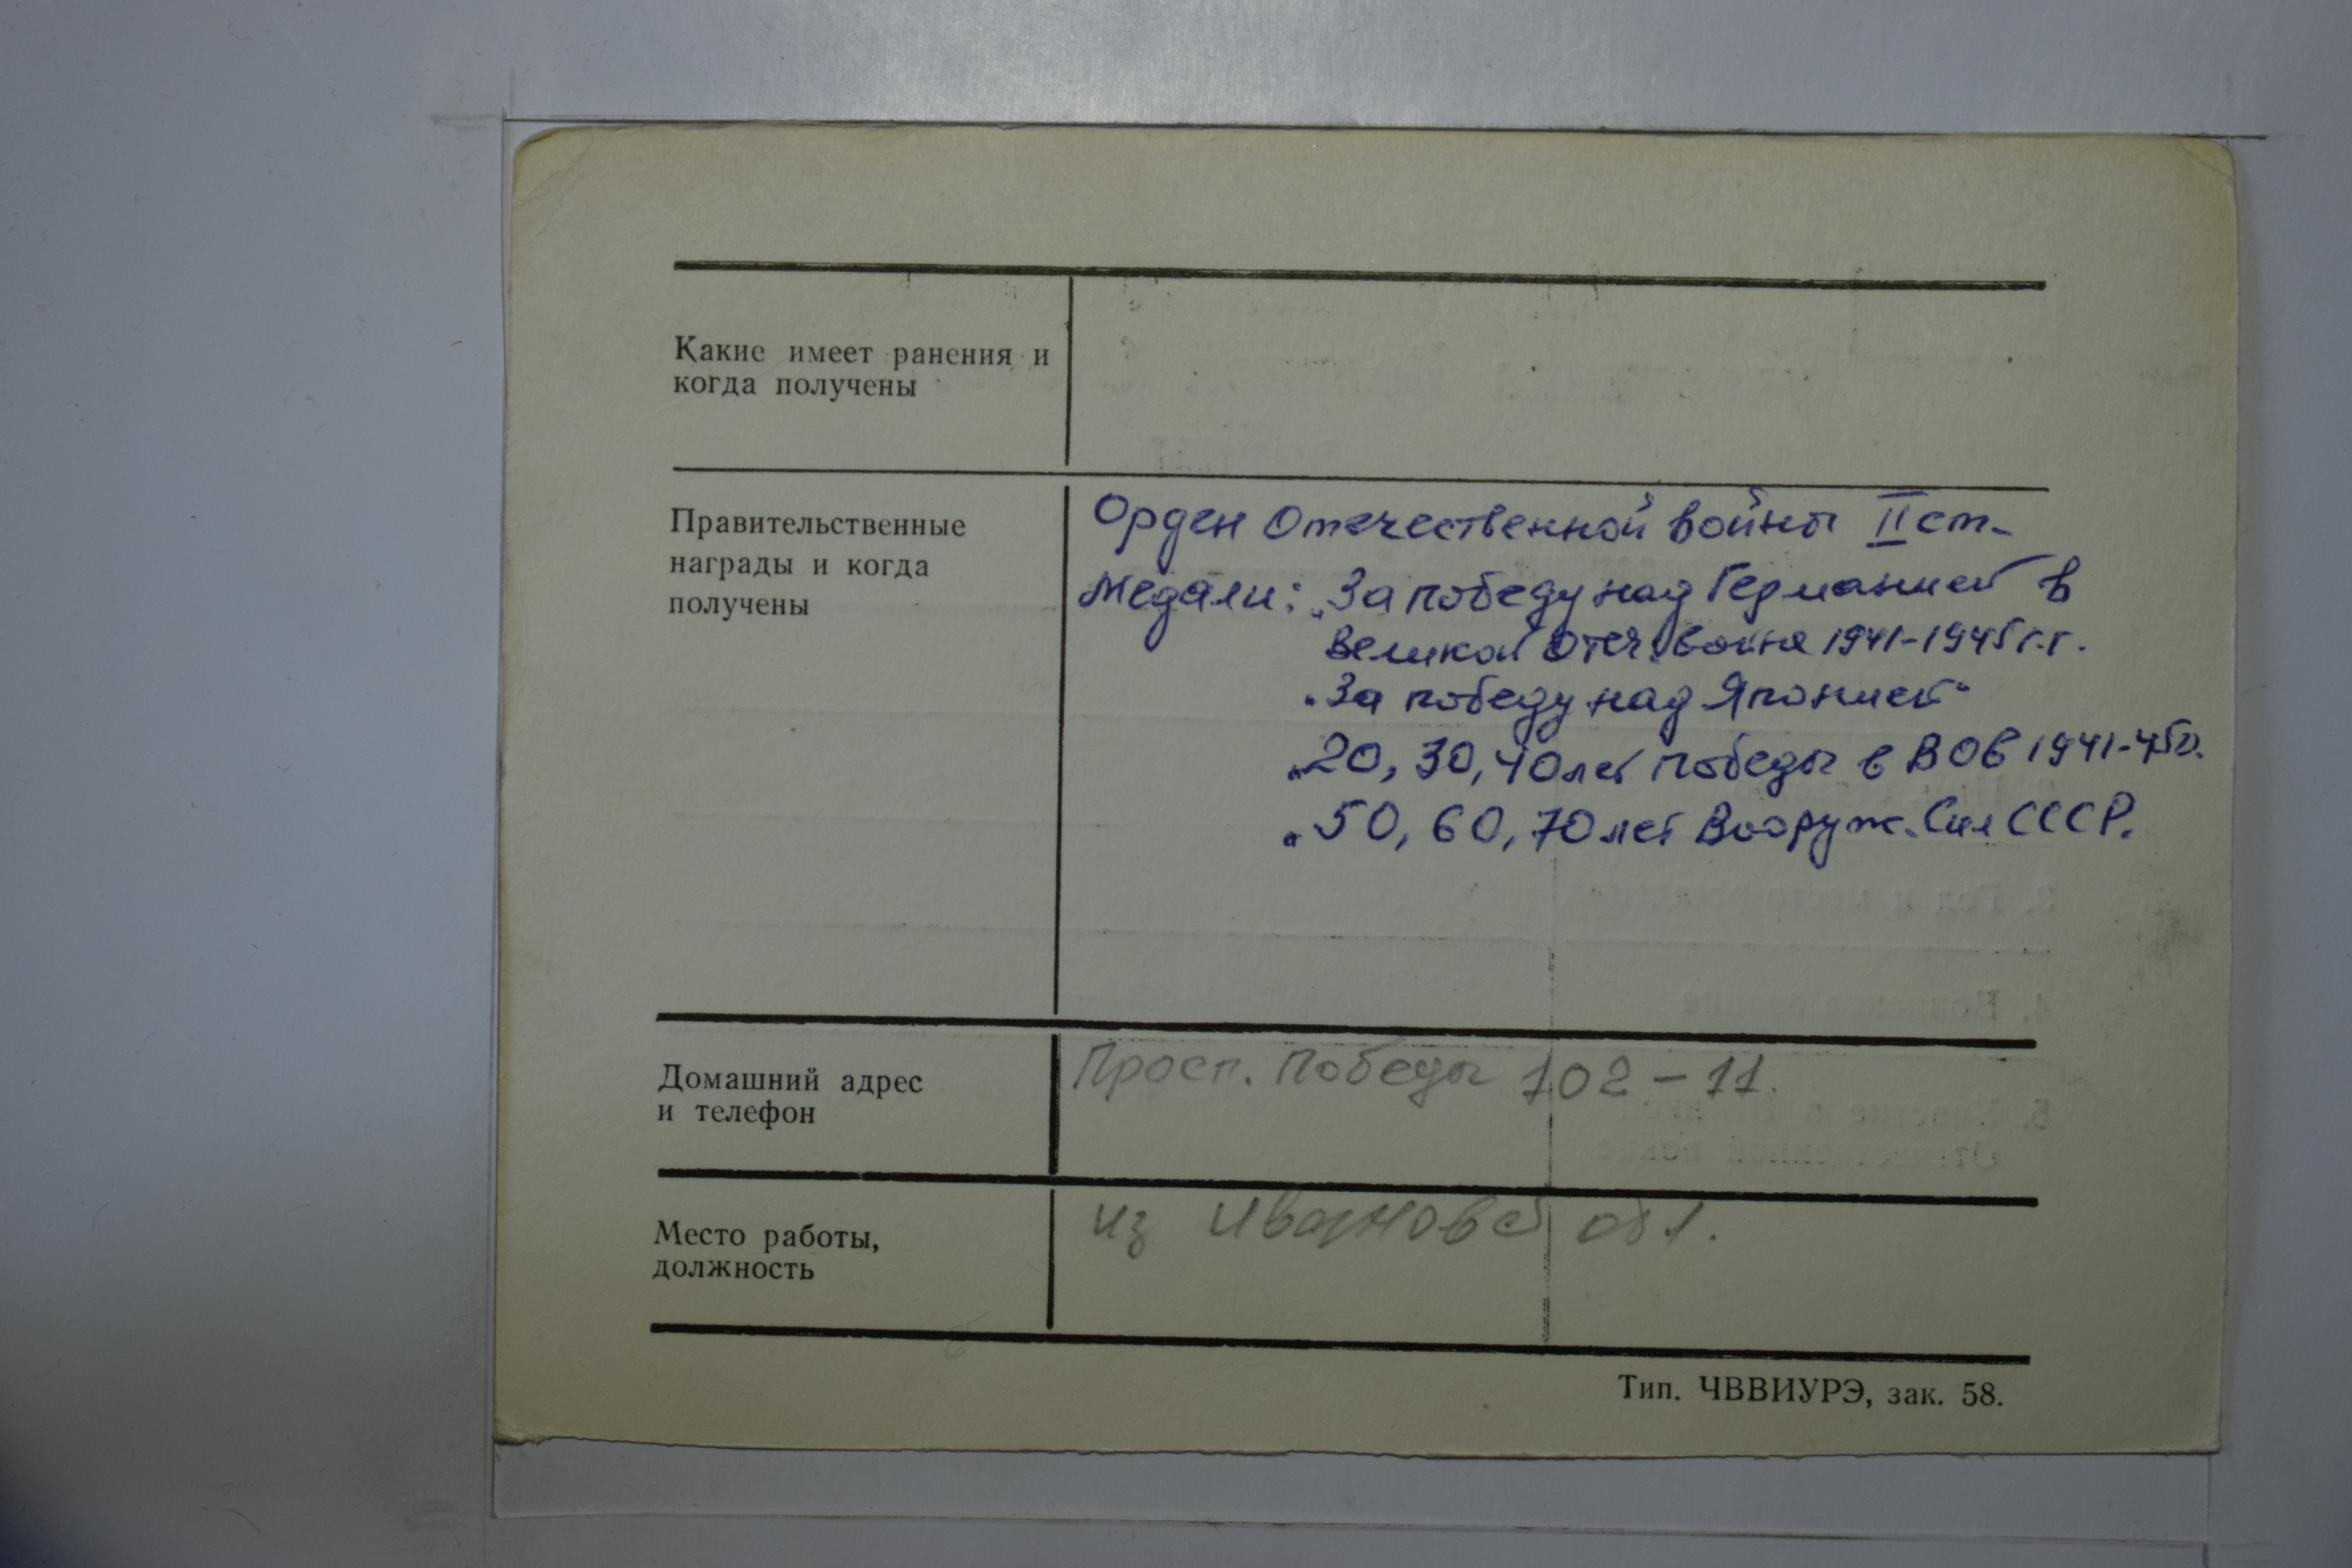 Какие имеет ранения и
когда получены
Правительственные
награды и когда
получены
Орден Отечественной войны II ст.
Медали: „За победу над Германией в
Великой Отеч. войне 1941-1945 г.г.
„За победу над Японией“
„20, 30, 40 лет победы в ВОВ 1941-45г.
„50, 60, 70 лет Вооруж. Сил СССР.
Домашний адрес
и телефон
Просп. Победы 102 – 11.
Место работы,
должность
из Ивановой обл.
Тип. ЧВВИУРЭ, зак. 58.